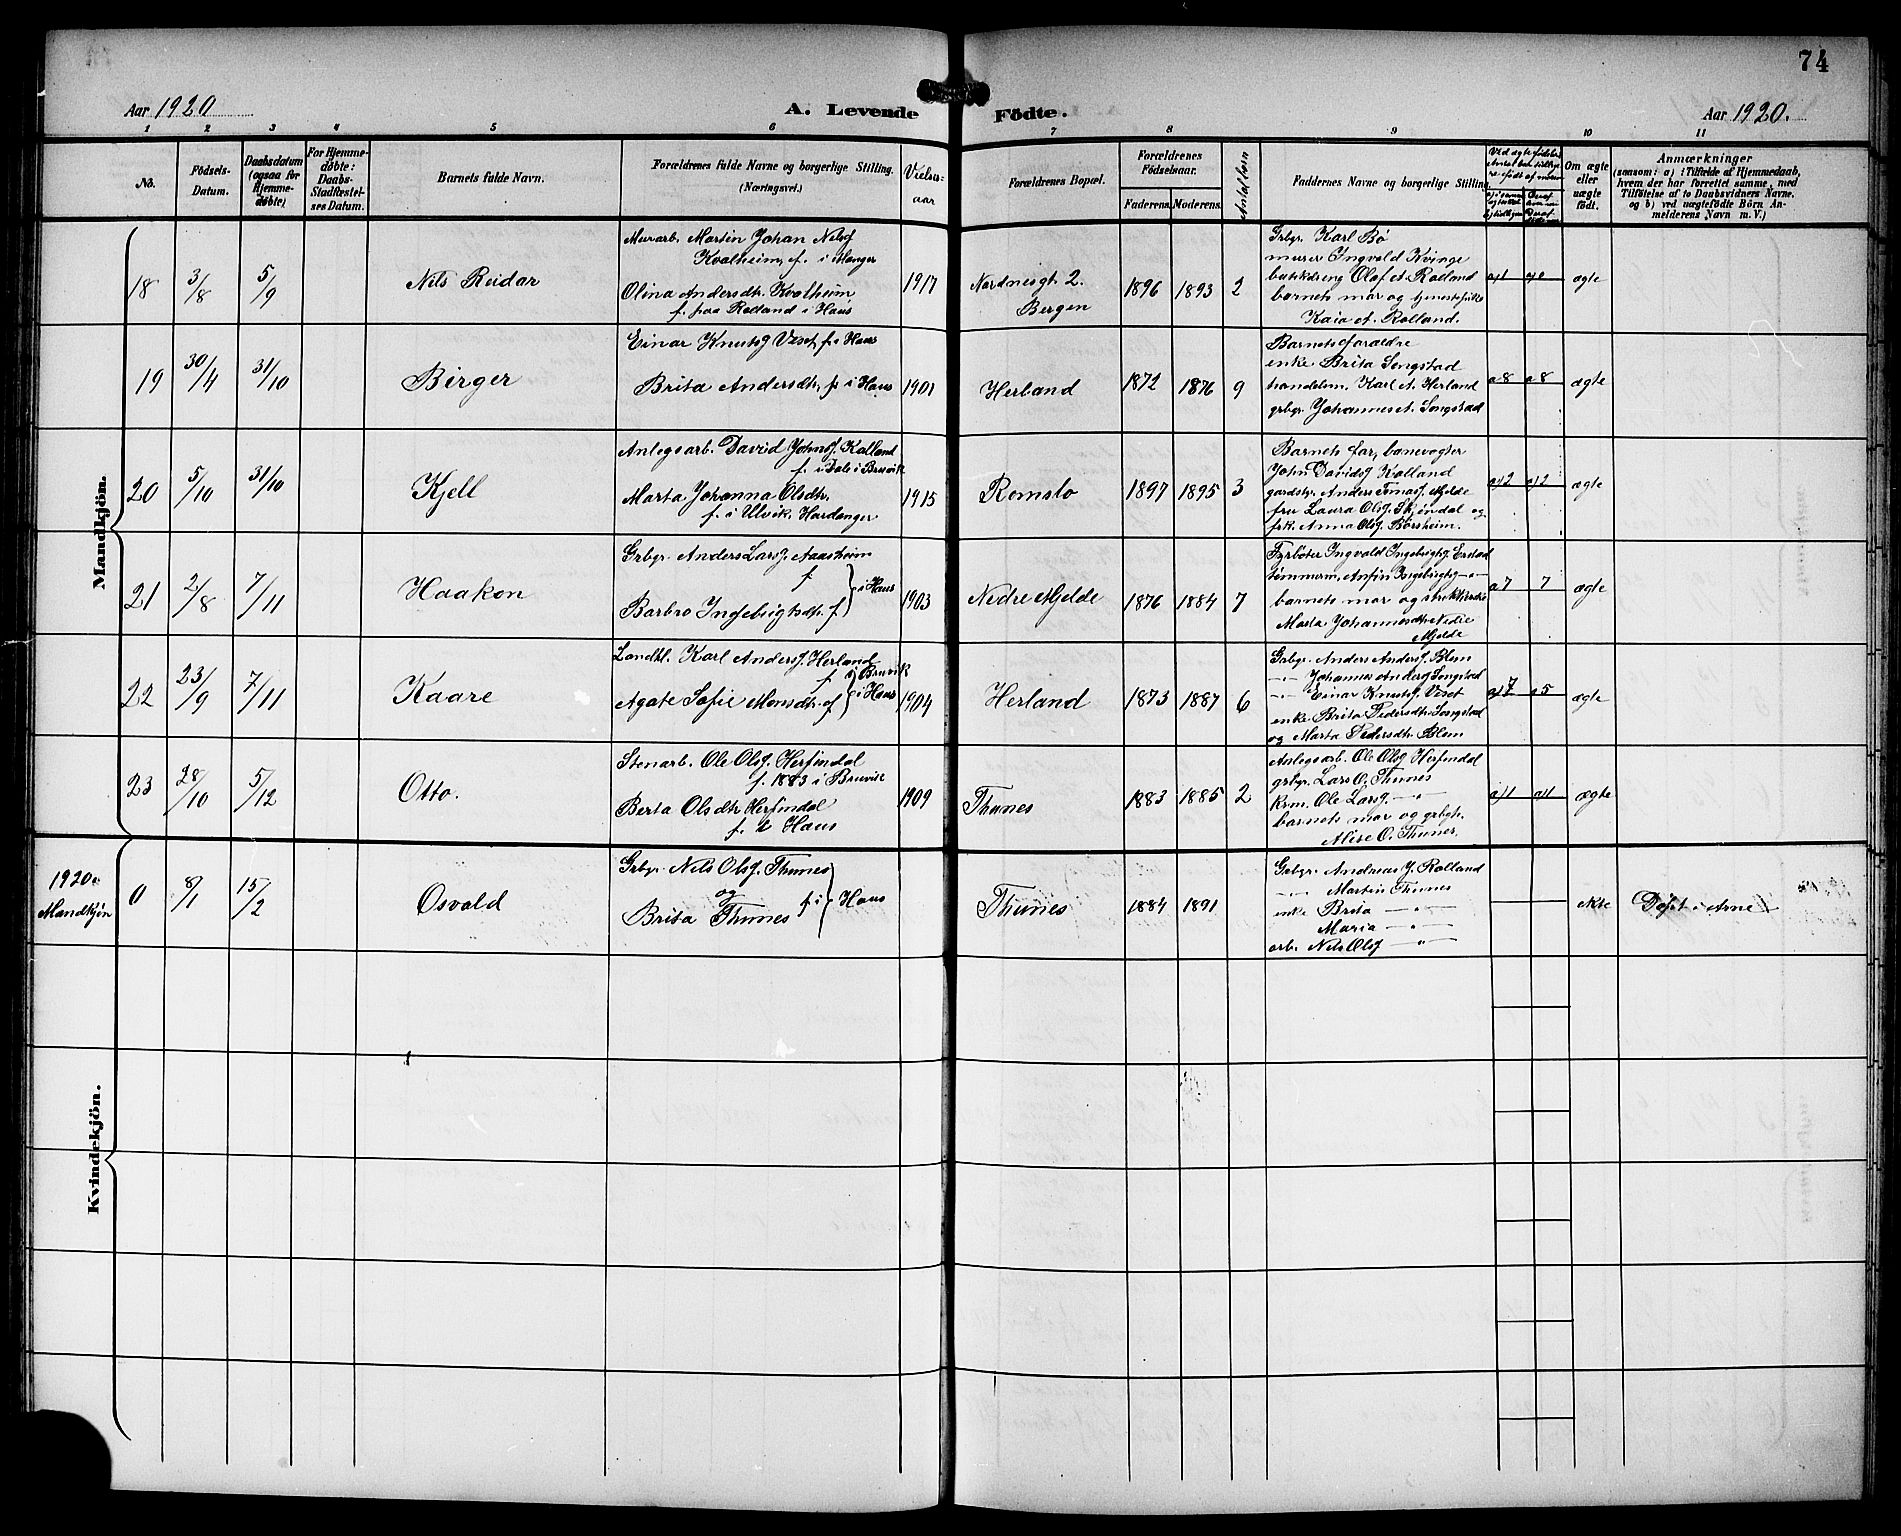 74
Aar 1920
A. Levende
Födte.
Aar 1920.
1 2 3 4 5 6 7 8 9 10 11
No.
Födsels-
Datum.
Daabsdatum
(ogsaa for
Hjemme-
døbte)
For Hjemme-
døbte:
Daabs-
Stadfæstel-
ses Datum.
Barnets fulde Navn.
Forældrenes fulde Navne og borgerlige Stilling.
(Næringsvei.)
Vielses-
aar
Forældrenes Bopæl.
Forældrenes
Födselsaar.
Faderens. Moderens.
Antal barn
Faddernes Navne og borgerlige Stilling
Om ægte
eller
uægte
født.
Anmærkninger
(saasom: a) i Tilfælde af Hjemmedaab,
hvem der har forrettet samme, med
Tilføielse af to Daabsvidners Navne,
og b) ved uægtefödte Börn An-
melderens Navn m. V.)
Mandkjön.
18 3/8 5/9 Nils Reidar
Murarb. Martin Johan Nilsf
Kvalheim, f. i Manger
Olina Andersdtr. Kvalheim
f. paa Rolland i Haus
1917
Nordnesgt. 2.
Bergen
1896 1893 2
Grbgr. Karl Bø
murer Ingvald Kvinge
butikdreng Olaf A. Rolland
barnets mor og tjenestepike
Kaia A. Rolland.
a)1 a)0 ægte
19 30/4 31/10 Birger
Einar Knutsf Veset, f. i Haus
Brita Andersdtr. f. i Haus
1901
Herland
1872 1876 9
Barnets foraeldre
enke Brita Songstad
handelsm. Karl A. Herland
grbgr. Johannes A. Songstad
a8 a8 ægte
20 5/10 31/10 Kjell
Anlegsarb. David Johnsf. Kalland
f. i Dale i Bruvik
Marta Johanna Olsdtr.
f. i Ulvik, Hardanger
1915
Romslo
1897 1895 3
Barnets far, banevogter
John Davidsf Kalland
gardstr. Anders Tomasf. Mjelde
fru Laura Olsf. Skjöndal og
frk. Anna Olsf Börsheim.
a)2 a)2 ægte
21 2/8 7/11 Haakon
Grbgr. Anders Larsf. Aasheim
f
i Haus
Barbro Ingebrigtsdtr. f.
1903
Nedre Mjelde
1876 1884 7
Fyrböter Ingvald Ingebrigtsf. Erstad
tømmerm. Anfin Ingebrigtsf —"—
barnets mor og
Marta Johannesdtr Nedre
Mjelde
a7 7 ægte
22 23/9 7/11 Kaare
Landhl. Karl Andersf. Herland
f i Bruvik
Agate Sofie Monsdtr. f i Haus
1904
Herland
1873 1887 6
Grbgr. Anders Andersf. Blom
—"— Johannes Andersf Songstad
—"— Einar Knutsf. Veset
enke Brita Pedersdtr. Songstad
og Marta Pedersdtr. Blom
a)7 a5 ægte
23 28/10 5/12 Otto.
Stenarb. Ole Olsf. Herfindal
f. 1883 i Bruvik
Berta Olsdtr. Herfindal
f. i Haus
1909
Thunes
1883 1885 2
Anlegsarb. Ole Olsf Herfindal
grbgr. Lars O. Thunes
kvm. Ole Larsf. —"—
barnets mor og grbgr.
Alise O. Thunes.
a)1 a)1 ægte
1920
Mandkjön
0 8/1 15/2 Osvald
Grbgr. Nils Olsf. Thunes
og f i Haus
Brita Thunes
Thunes
1884 1891
Grbgr. Andreas J. Rolland
—"— Martin Thunes
enke Brita —"—
Maria —"—
arb. Nils Olsf —"—
ekte Döpt i Arne
Kvindekjön.